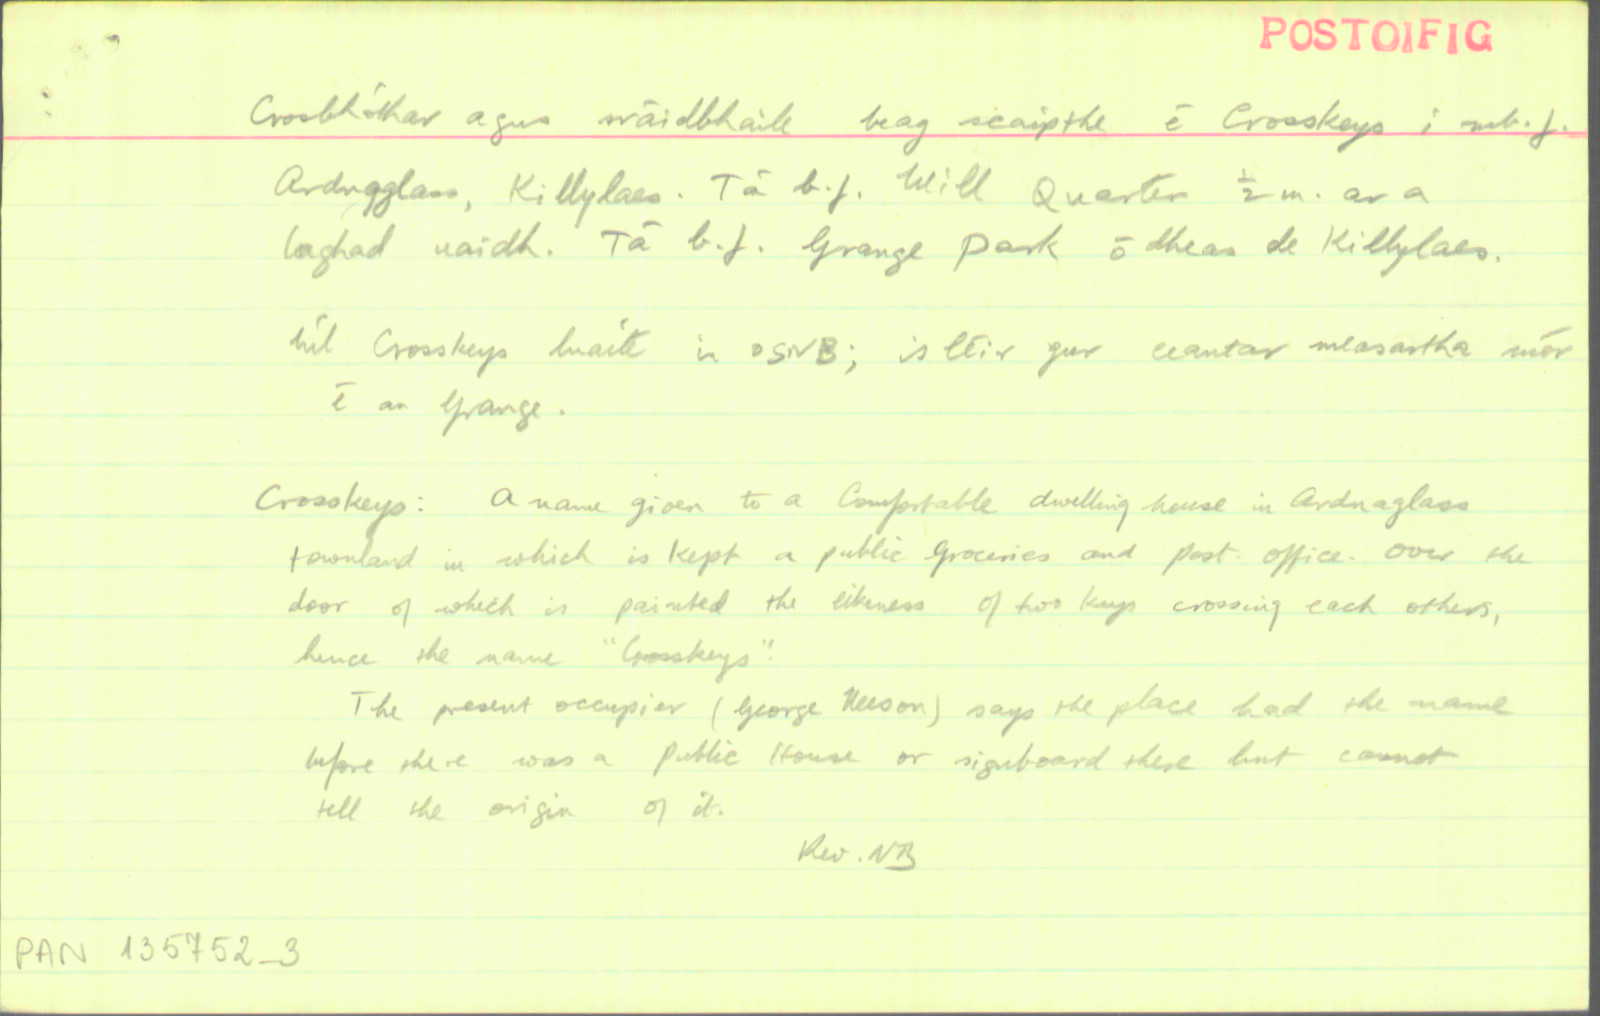 POSTOIFIG
Crosbhóthar agus sráidbhaile beag scaipthe é Crosskeys i mb.f.
Ardnagglass, Killylaes. Tá b.f. Mill Quarter ½ m. ar a
laghad uaidh. Tá b.f. Grange Park ó dheas de Killylaes.
Níl Crosskeys luaite in OSNB; is léir gur ceantar measartha mór
é an Grange.
Crosskeys: A name given to a Comfortable dwelling house in Ardnaglass
townland in which is kept a public Groceries and Post. Office. Over the
door of which is painted the likeness of two keys crossing each others,
hence the name "Crosskeys".
The present occupier (George Neeson) says the place had the name
before there was a Public House or signboard there but cannot
tell the origin of it.
Rev. NB
PAN 135752_3